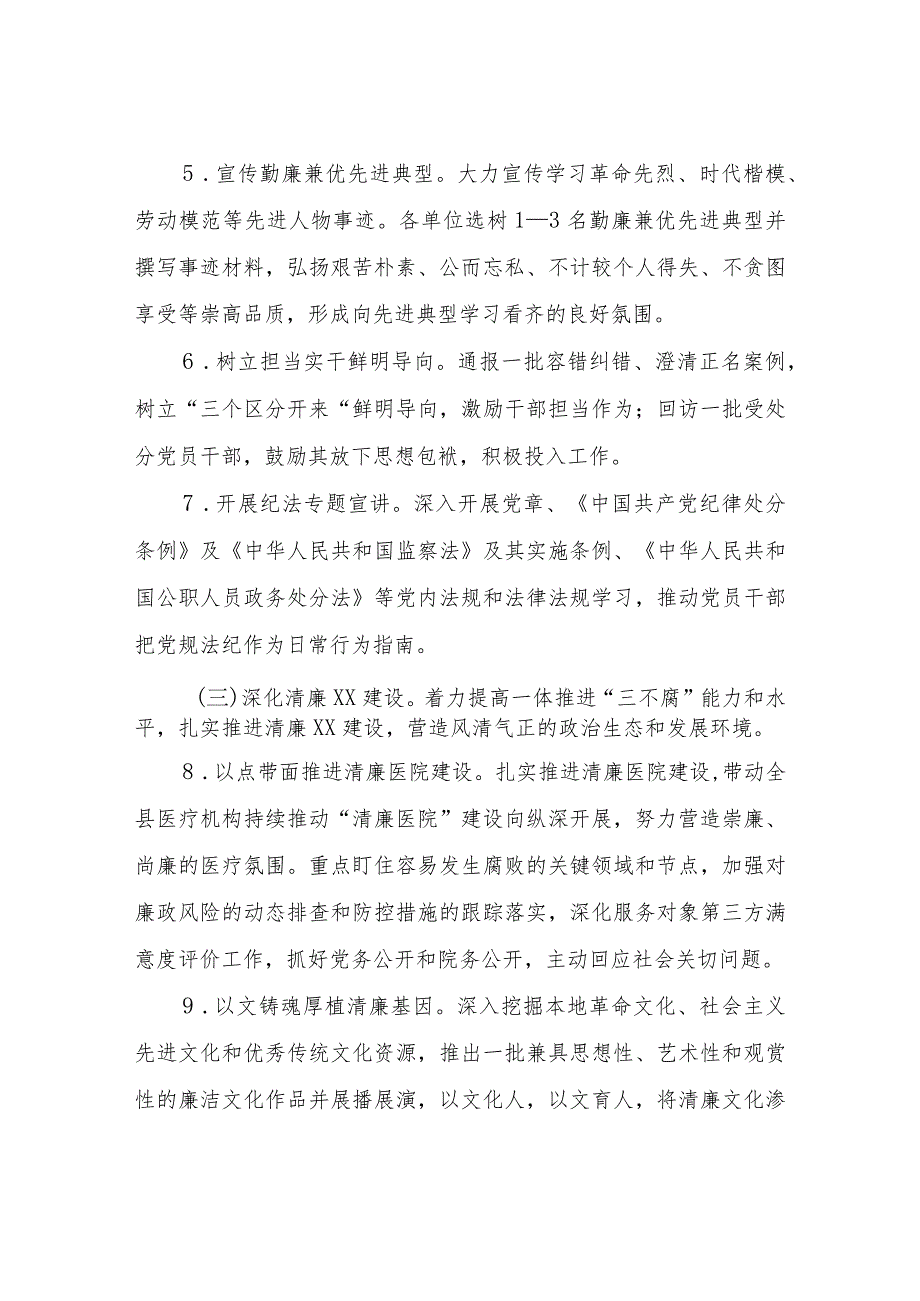 5.宣传勤廉兼优先进典型。大力宣传学习革命先烈、时代楷模、
劳动模范等先进人物事迹。各单位选树1—3名勤廉兼优先进典型并
撰写事迹材料，弘扬艰苦朴素、公而忘私、不计较个人得失、不贪图
享受等崇高品质，形成向先进典型学习看齐的良好氛围。
6.树立担当实干鲜明导向。通报一批容错纠错、澄清正名案例，
树立“三个区分开来“鲜明导向，激励干部担当作为；回访一批受处
分党员干部，鼓励其放下思想包袱，积极投入工作。
7.开展纪法专题宣讲。深入开展党章、《中国共产党纪律处分
条例》及《中华人民共和国监察法》及其实施条例、《中华人民共和
国公职人员政务处分法》等党内法规和法律法规学习，推动党员干部
把党规法纪作为日常行为指南。
(三)深化清廉XX建设。着力提高一体推进“三不腐”能力和水
平，扎实推进清廉XX建设，营造风清气正的政治生态和发展环境。
8.以点带面推进清廉医院建设。扎实推进清廉医院建设,带动全
县医疗机构持续推动“清廉医院”建设向纵深开展，努力营造崇廉、
尚廉的医疗氛围。重点盯住容易发生腐败的关键领域和节点，加强对
廉政风险的动态排查和防控措施的跟踪落实，深化服务对象第三方满
意度评价工作，抓好党务公开和院务公开，主动回应社会关切问题。
9.以文铸魂厚植清廉基因。深入挖掘本地革命文化、社会主义
先进文化和优秀传统文化资源，推出一批兼具思想性、艺术性和观赏
性的廉洁文化作品并展播展演，以文化人，以文育人，将清廉文化渗